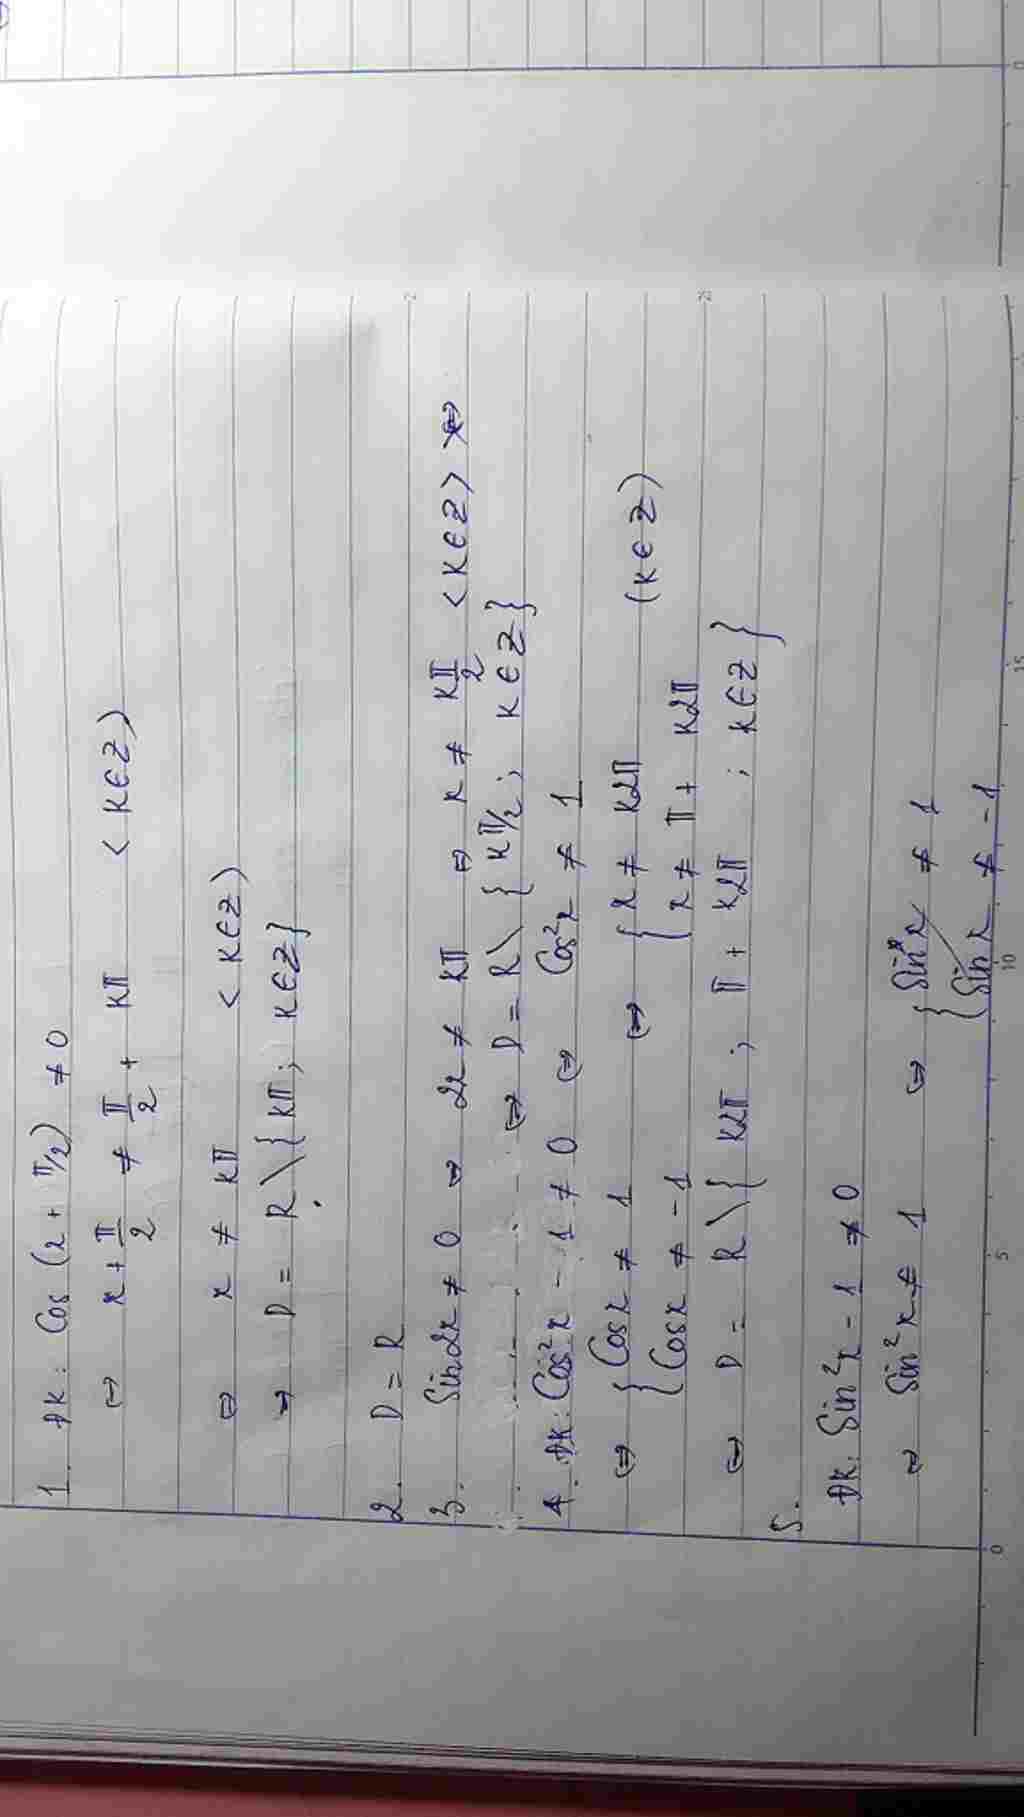 1. ĐK: Cos (x + π/2) ≠ 0
⇔ x + π/2 ≠ π/2 + kπ <k∈Z)
⇔ x ≠ kπ <k∈Z)
⇒ D = R \ { kπ; k∈Z}
2. D = R
3. Sin2x ≠ 0 ⇔ 2x ≠ kπ ⇔ x ≠ kπ/2 <k∈Z> ⇔
⇔ D = R \ { kπ/2; k∈Z}
4. ĐK: Cos²x - 1 ≠ 0 ⇔ Cos²x ≠ 1
⇔ { Cosx ≠ 1 ⇔ { x ≠ k2π (k∈Z)
Cosx ≠ -1 x ≠ π + k2π
⇔ D = R \ { k2π ; π + k2π ; k∈Z }
5.
ĐK: Sin²x - 1 ≠ 0
⇔ Sin²x ≠ 1 ⇔ { Sinx ≠ 1
Sinx ≠ -1
0 5 10 15